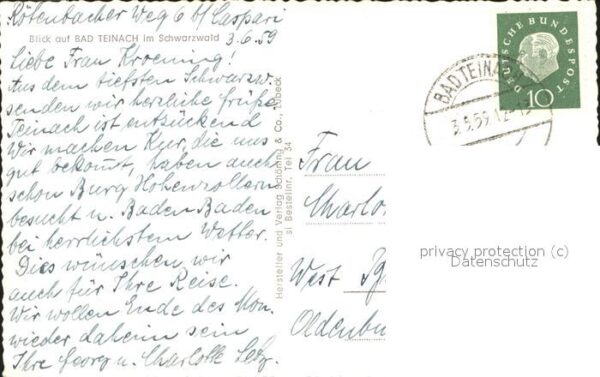 Rötenbacher Weg 6 b/ Caspari
Blick auf BAD TEINACH im Schwarzwald
3.6.59
Liebe Frau Kroening!
Aus dem tiefsten Schwarzw.
senden wir herzliche Grüße
Teinach ist entzückend
Wir machen Kur, die uns
gut bekommt, haben auch
schon Burg Hohenzollern
besucht u. Baden-Baden
bei herrlichstem Wetter.
Dies wünschen wir
auch für Ihre Reise.
Wir wollen Ende des Mon.
wieder daheim sein
Ihre Georg u. Charlotte
Hersteller und Verlag Schöning & Co., Lübeck
Bestellnr. Tei 34
DEUTSCHE BUNDESPOST
10
BAD TEINACH
Frau
Charlo
West
Oldenbu
privacy protection (c)
Datenschutz